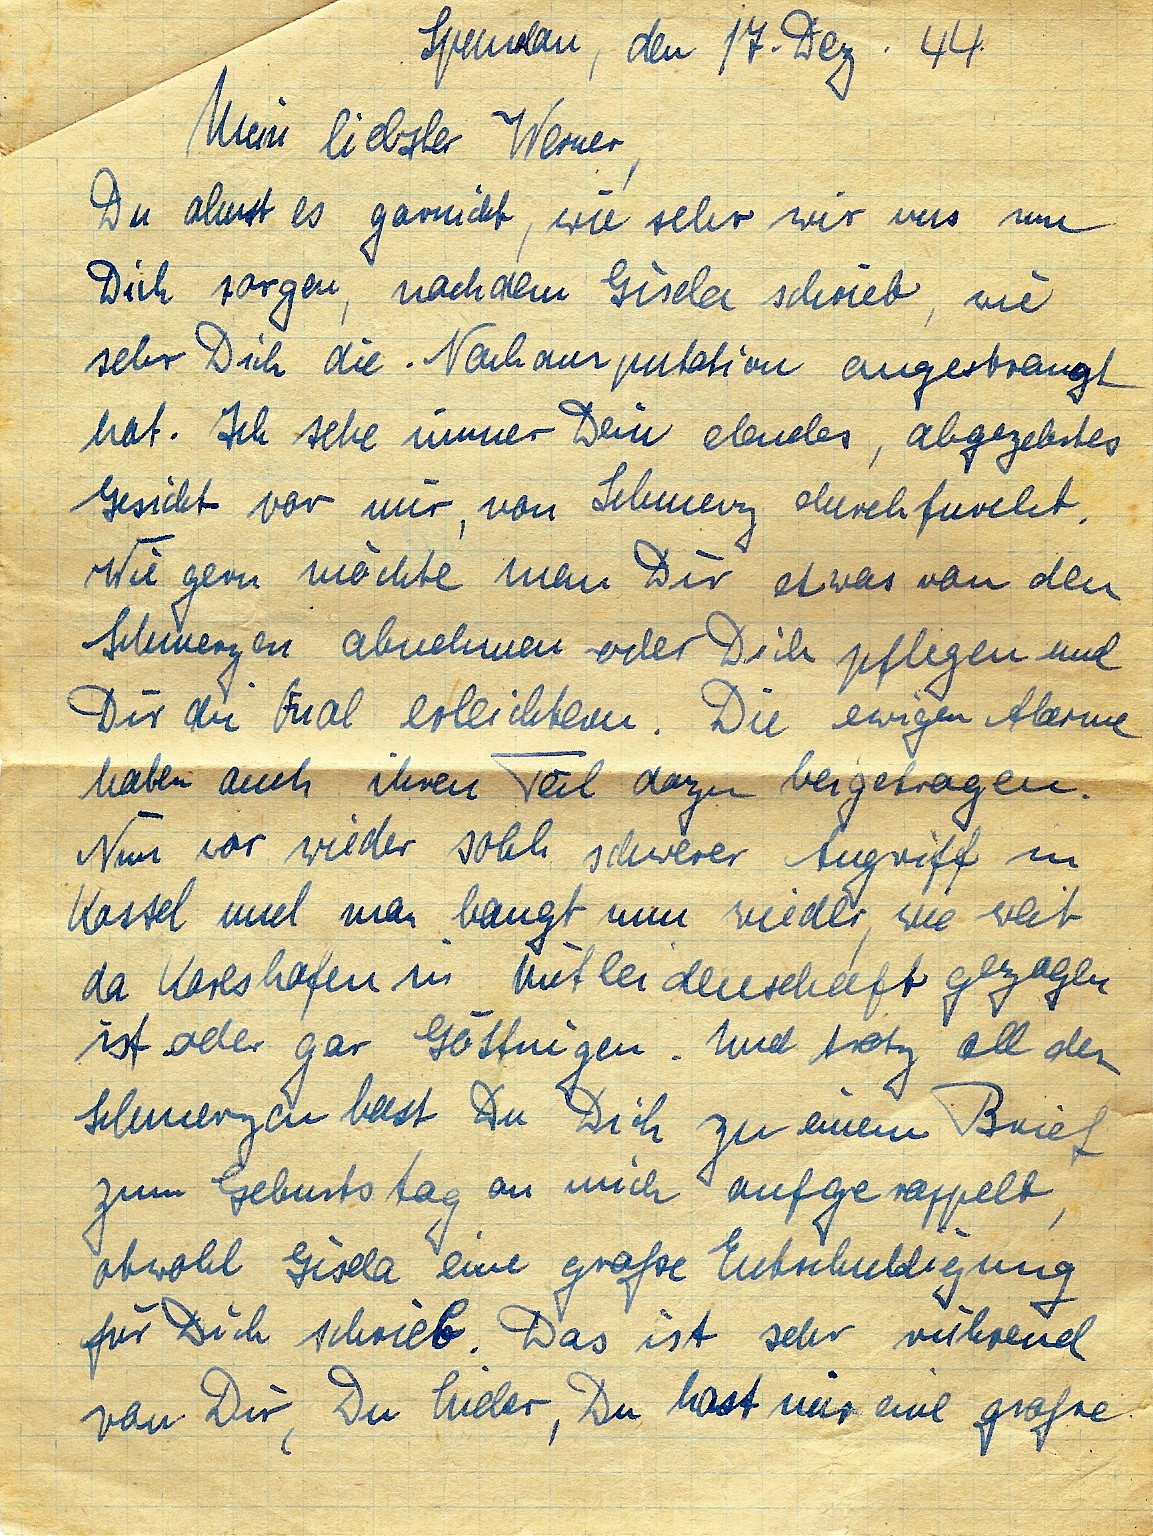 Spandau, den 17. Dez. 44.
Mein liebster Werner,
Du ahnst es garnicht, wie sehr wir uns um
Dich sorgen, nachdem Gisela schrieb, wie
sehr Dich die Nachamputation angestrengt
hat. Ich sehe immer Dein elendes, abgezehrtes
Gesicht vor mir, von Schmerz durchfurcht.
Wie gern möchte man Dir etwas von den
Schmerzen abnehmen oder Dich pflegen und
Dir die Qual erleichtern. Die ewigen Alarme
haben auch ihren Teil dazu beigetragen.
Nun war wieder solch schwerer Angriff in
Kassel und man bangt nun wieder, wie weit
da Karlshafen in Mitleidenschaft gezogen
ist oder gar Göttingen. Und trotz all der
Schmerzen hast Du Dich zu einem Brief
zum Geburtstag an mich aufgerappelt,
obwohl Gisela eine große Entschuldigung
für Dich schrieb. Das ist sehr rührend
von Dir, Du Lieber, Du hast mir eine große